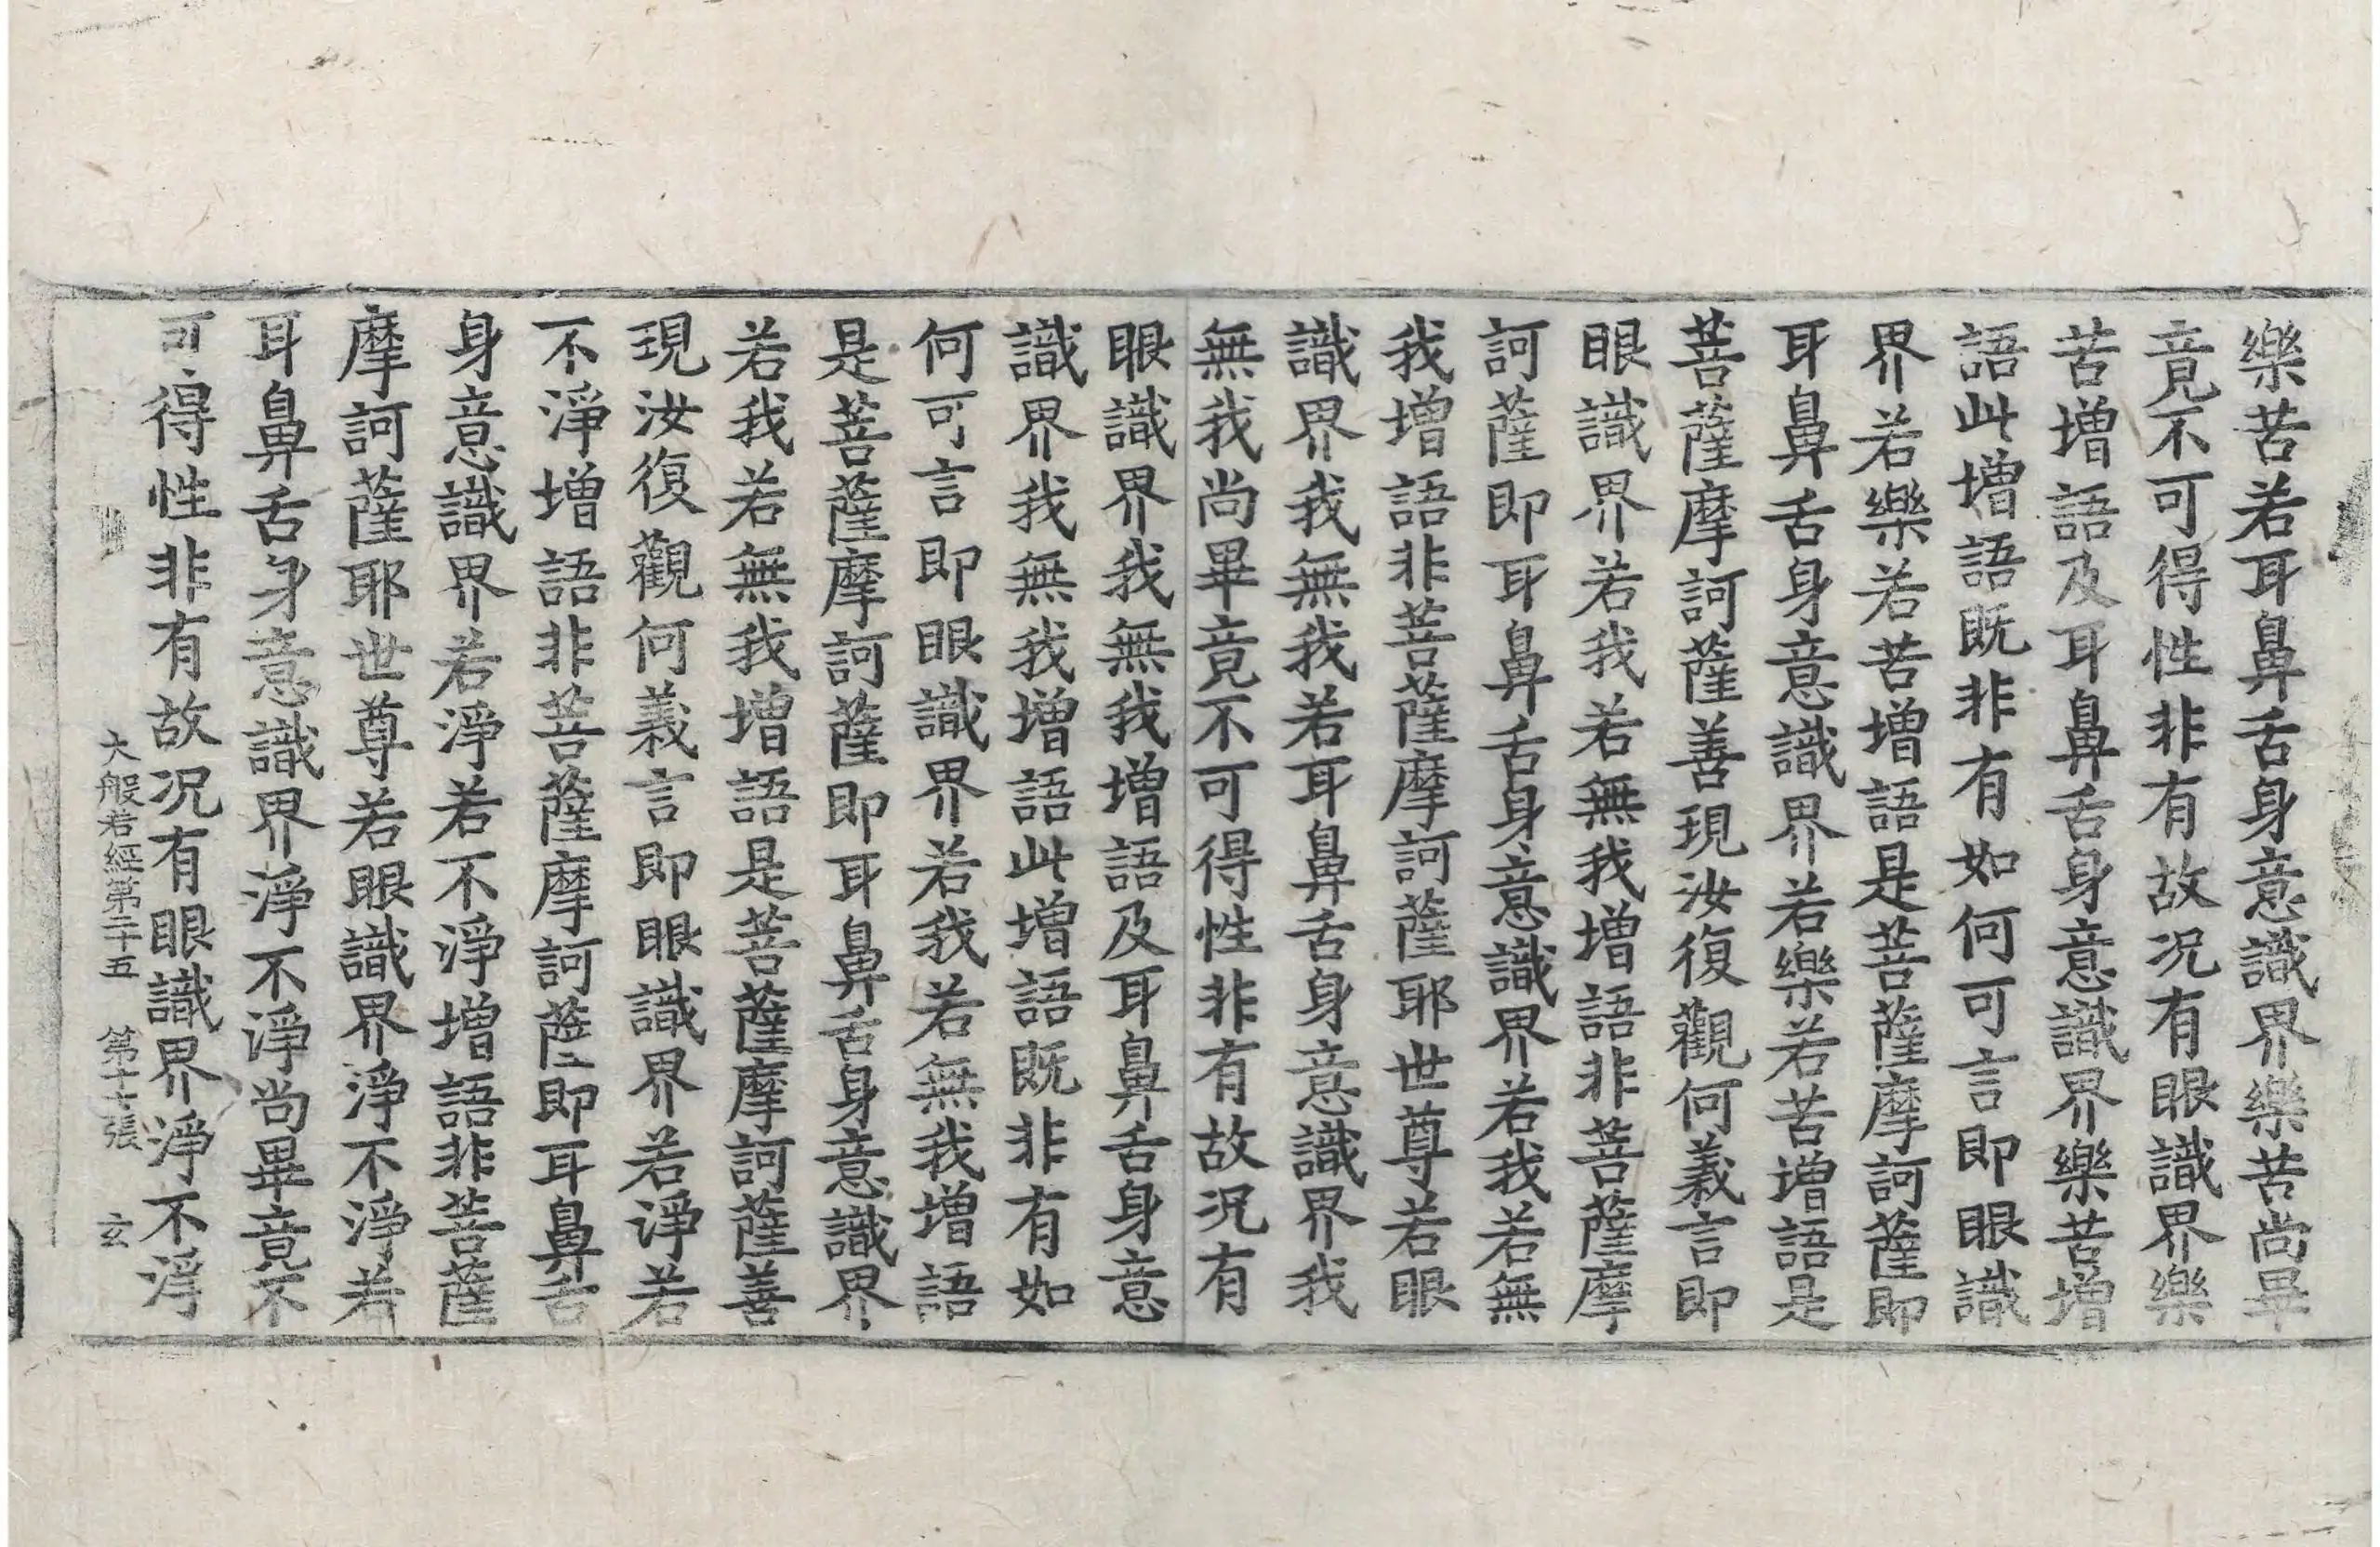 樂苦若耳鼻舌身意識界樂苦尚畢
竟不可得性非有故况有眼識界樂
苦增語及耳鼻舌身意識界樂苦增
語此增語既非有如何可言即眼識
界若樂若苦增語是菩薩摩訶薩即
耳鼻舌身意識界若樂若苦增語是
菩薩摩訶薩善現汝復觀何義言即
眼識界若我若無我增語非菩薩摩
訶薩即耳鼻舌身意識界若我若無
我增語非菩薩摩訶薩耶世尊若眼
識界我無我若耳鼻舌身意識界我
無我尚畢竟不可得性非有故况有
眼識界我無我增語及耳鼻舌身意
識界我無我增語此增語既非有如
何可言即眼識界若我若無我增語
是菩薩摩訶薩即耳鼻舌身意識界
若我若無我增語是菩薩摩訶薩善
現汝復觀何義言即眼識界若淨若
不淨增語非菩薩摩訶薩即耳鼻舌
身意識界若淨若不淨增語非菩薩
摩訶薩耶世尊若眼識界淨不淨若
耳鼻舌身意識界淨不淨尚畢竟不
可得性非有故况有眼識界淨不淨
大般若經第二十五 第十七張 玄